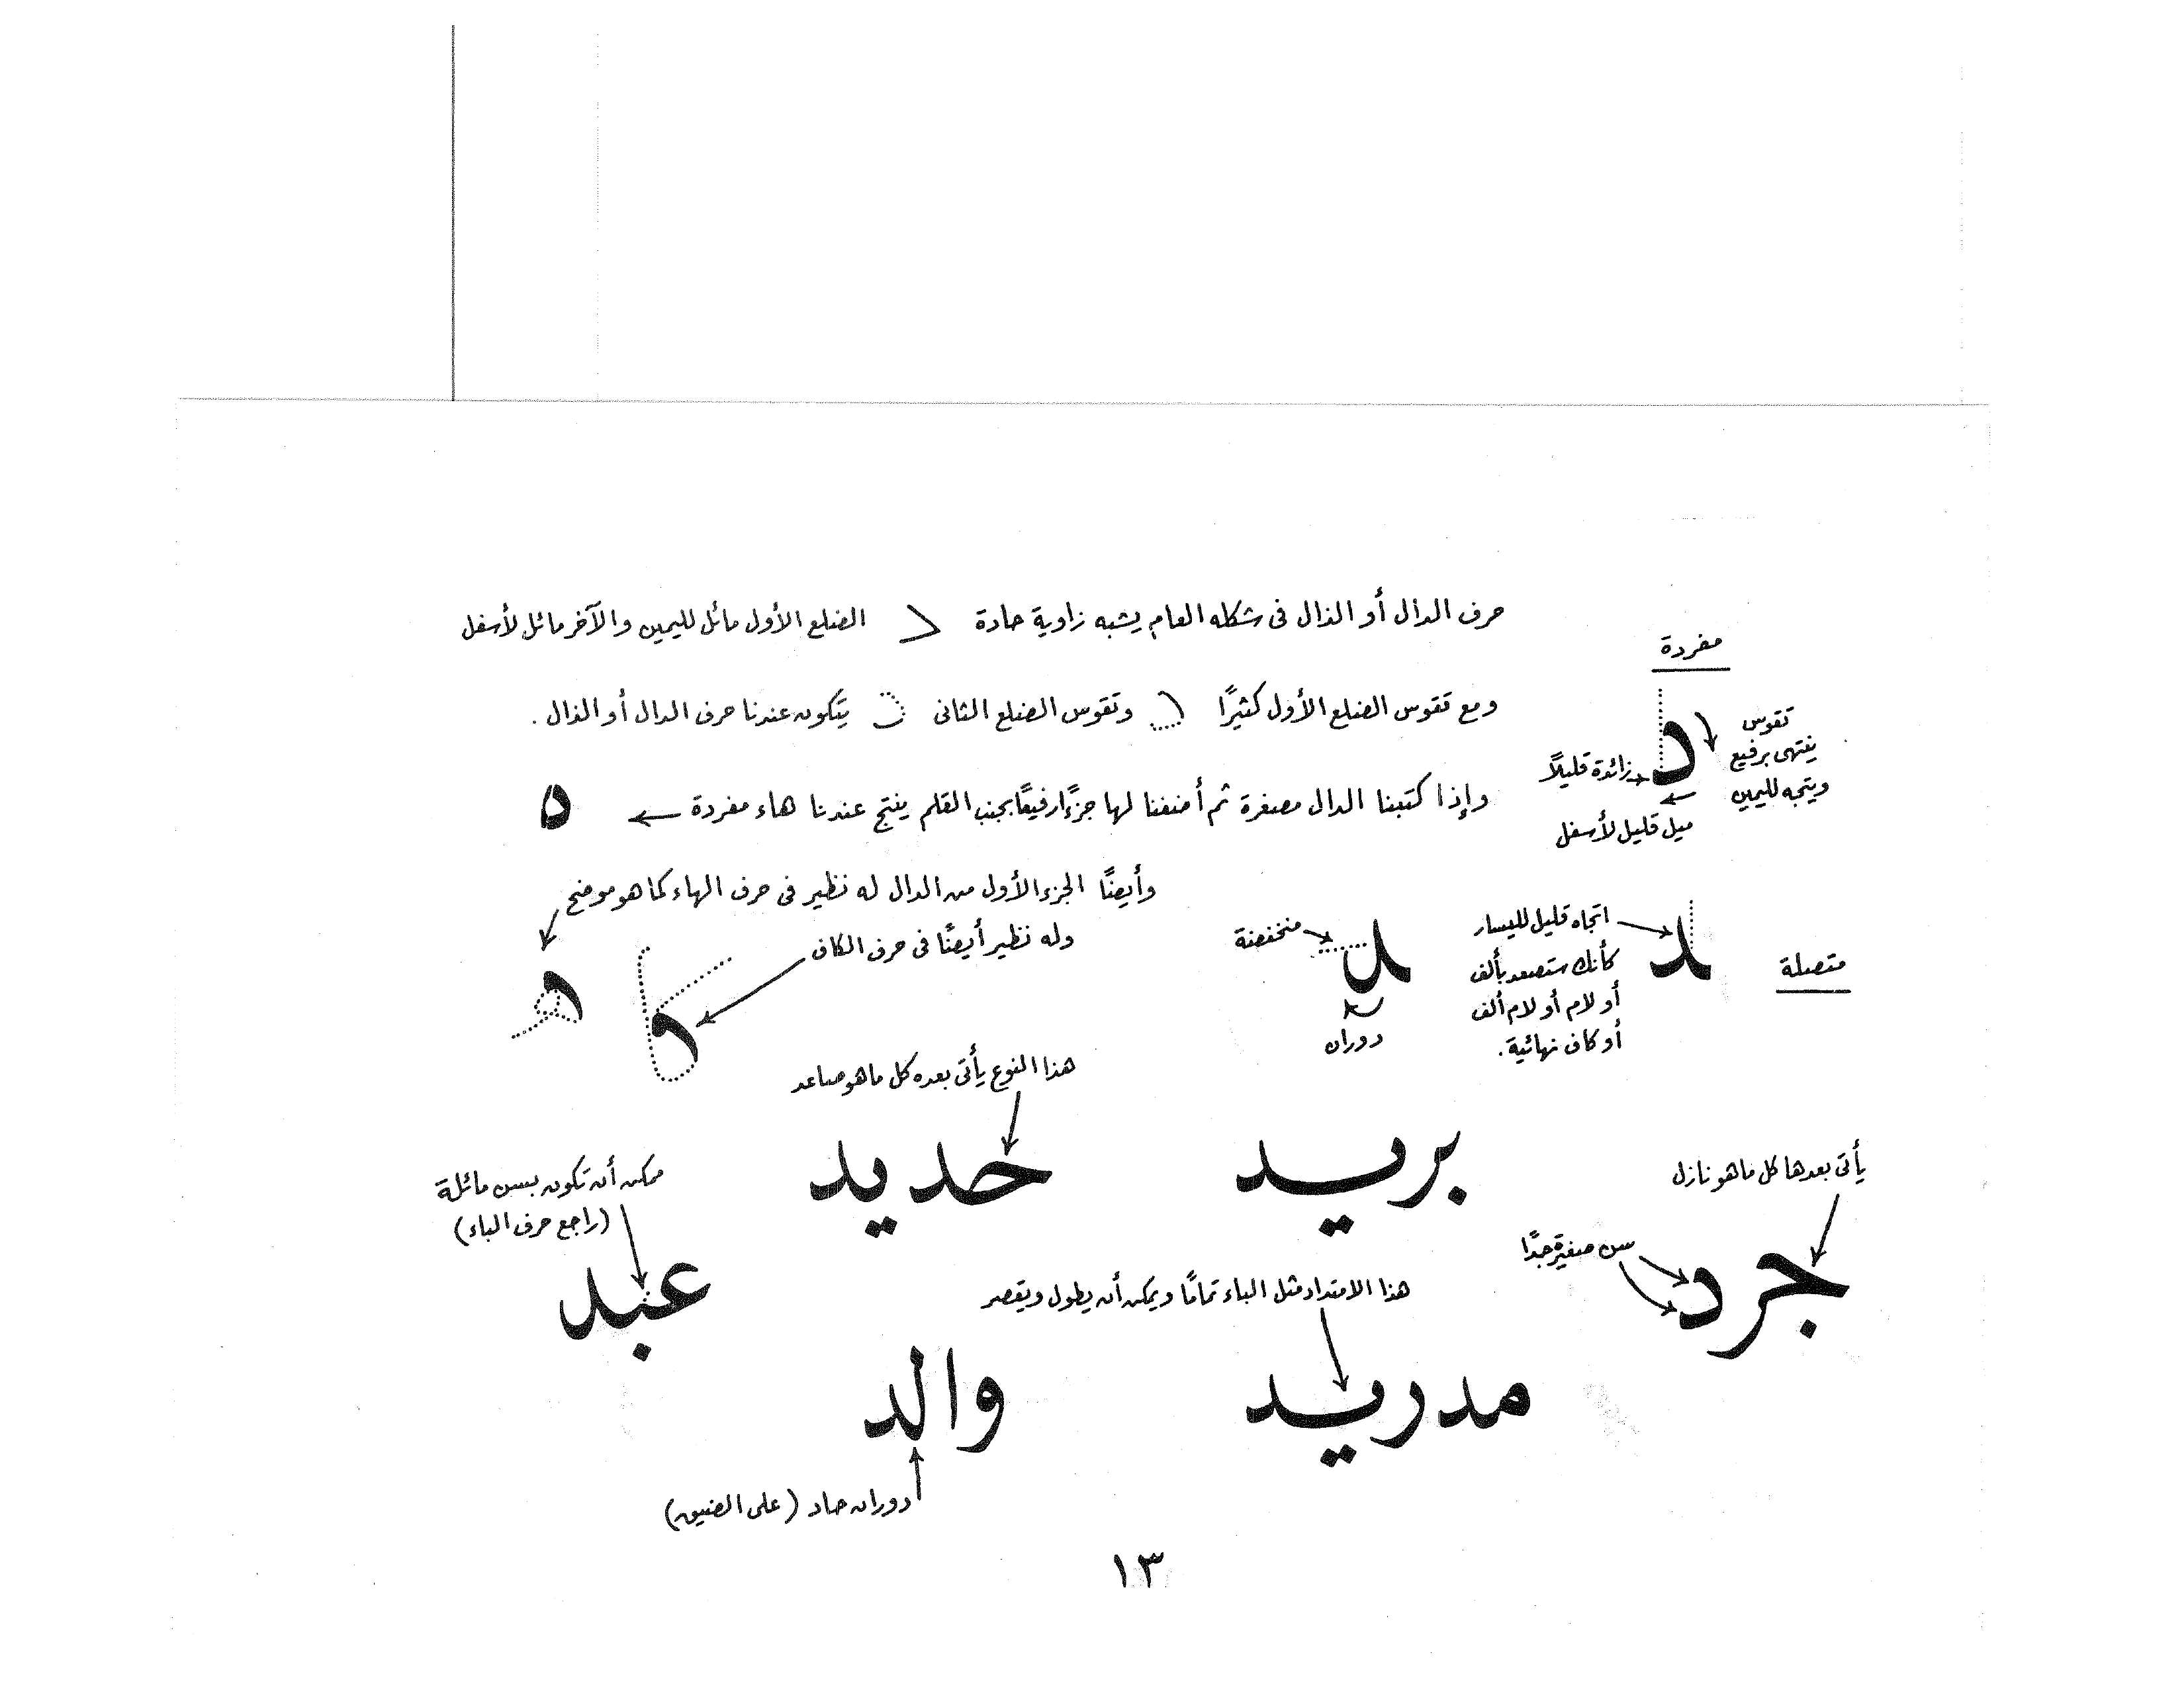 حرف الدال أو الذال فى شكله العام يشبه زاوية حادة الضلع الأول مائل لليمين والآخر مائل لأسفل
مفردة
ومع تقوس الضلع الأول كثيرًا وتقوس الضلع الثانى يتكون عندنا حرف الدال أو الذال .
تقوس
ينتهى برفيع
ويتجه لليمين
د
زائدة قليلاً
ميل قليل لأسفل
وإذا كتبنا الدال مصغرة ثم أضفنا لها جزءًا رفيعًا بجنب القلم ينتج عندنا هاء مفردة
ه
وأيضًا الجزء الأول من الدال له نظير فى حرف الهاء كما هو موضح
وله نظير أيضًا فى حرف الكاف
متصلة
اتجاه قليل لليسار
كأنك ستصعد بألف
أو لام أو لام ألف
أو كاف نهائية .
منخفضة
دوران
هذا النوع يأتى بعده كل ما هو صاعد
بريد
حديد
يأتى بعدها كل ما هو نازل
سن صغيرة جدًا
جرد
ممكن أن تكون بسن مائلة
(راجع حرف الباء)
عبد
هذا الامتداد مثل الباء تمامًا ويمكن أن يطول ويقصر
مدريد
والد
دوران حاد (على الضيق)
١٣